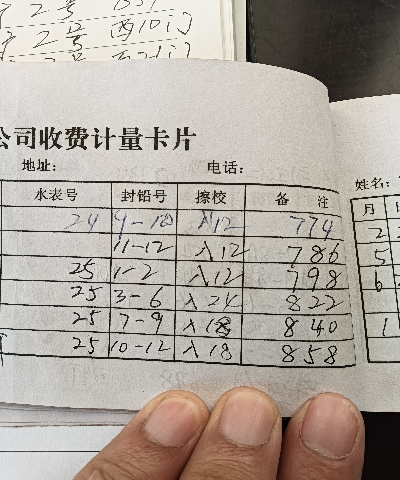 2号 西10门
公司收费计量卡片
地址: 电话:
水表号 封铅号 擦校 备 注
24 9-10 入12 774
11-12 入12 786
25 1-2 入12 798
25 3-6 入24 822
25 7-9 入18 840
25 10-12 入18 858
姓名:
月
2
5
6
1